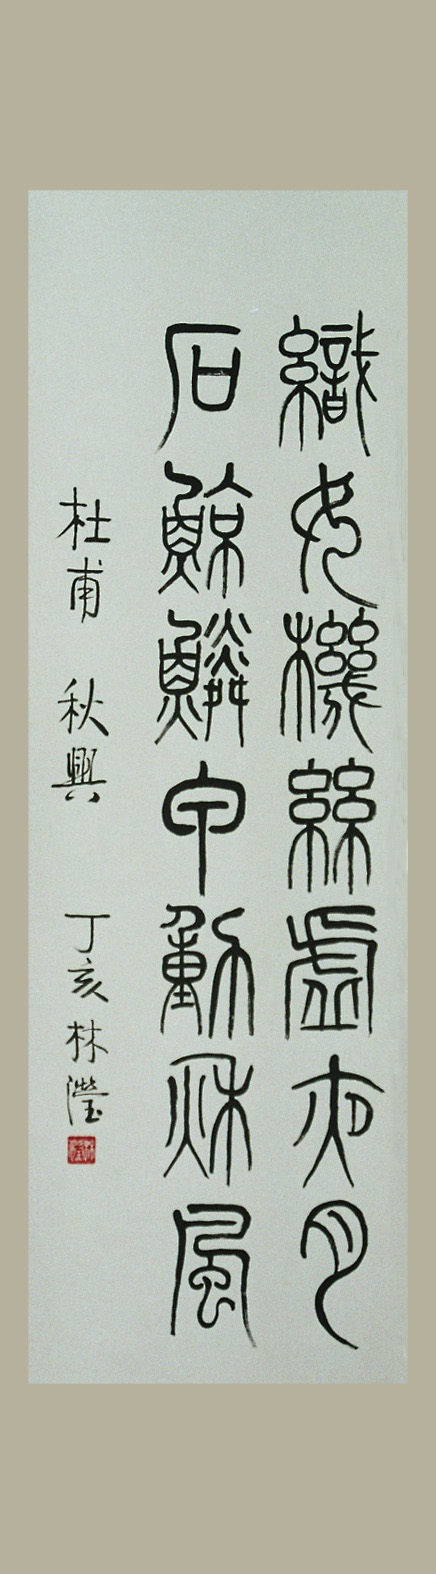 織女機絲虛夜月
石鯨鱗甲動秋風
杜甫 秋興 丁亥 林瀅